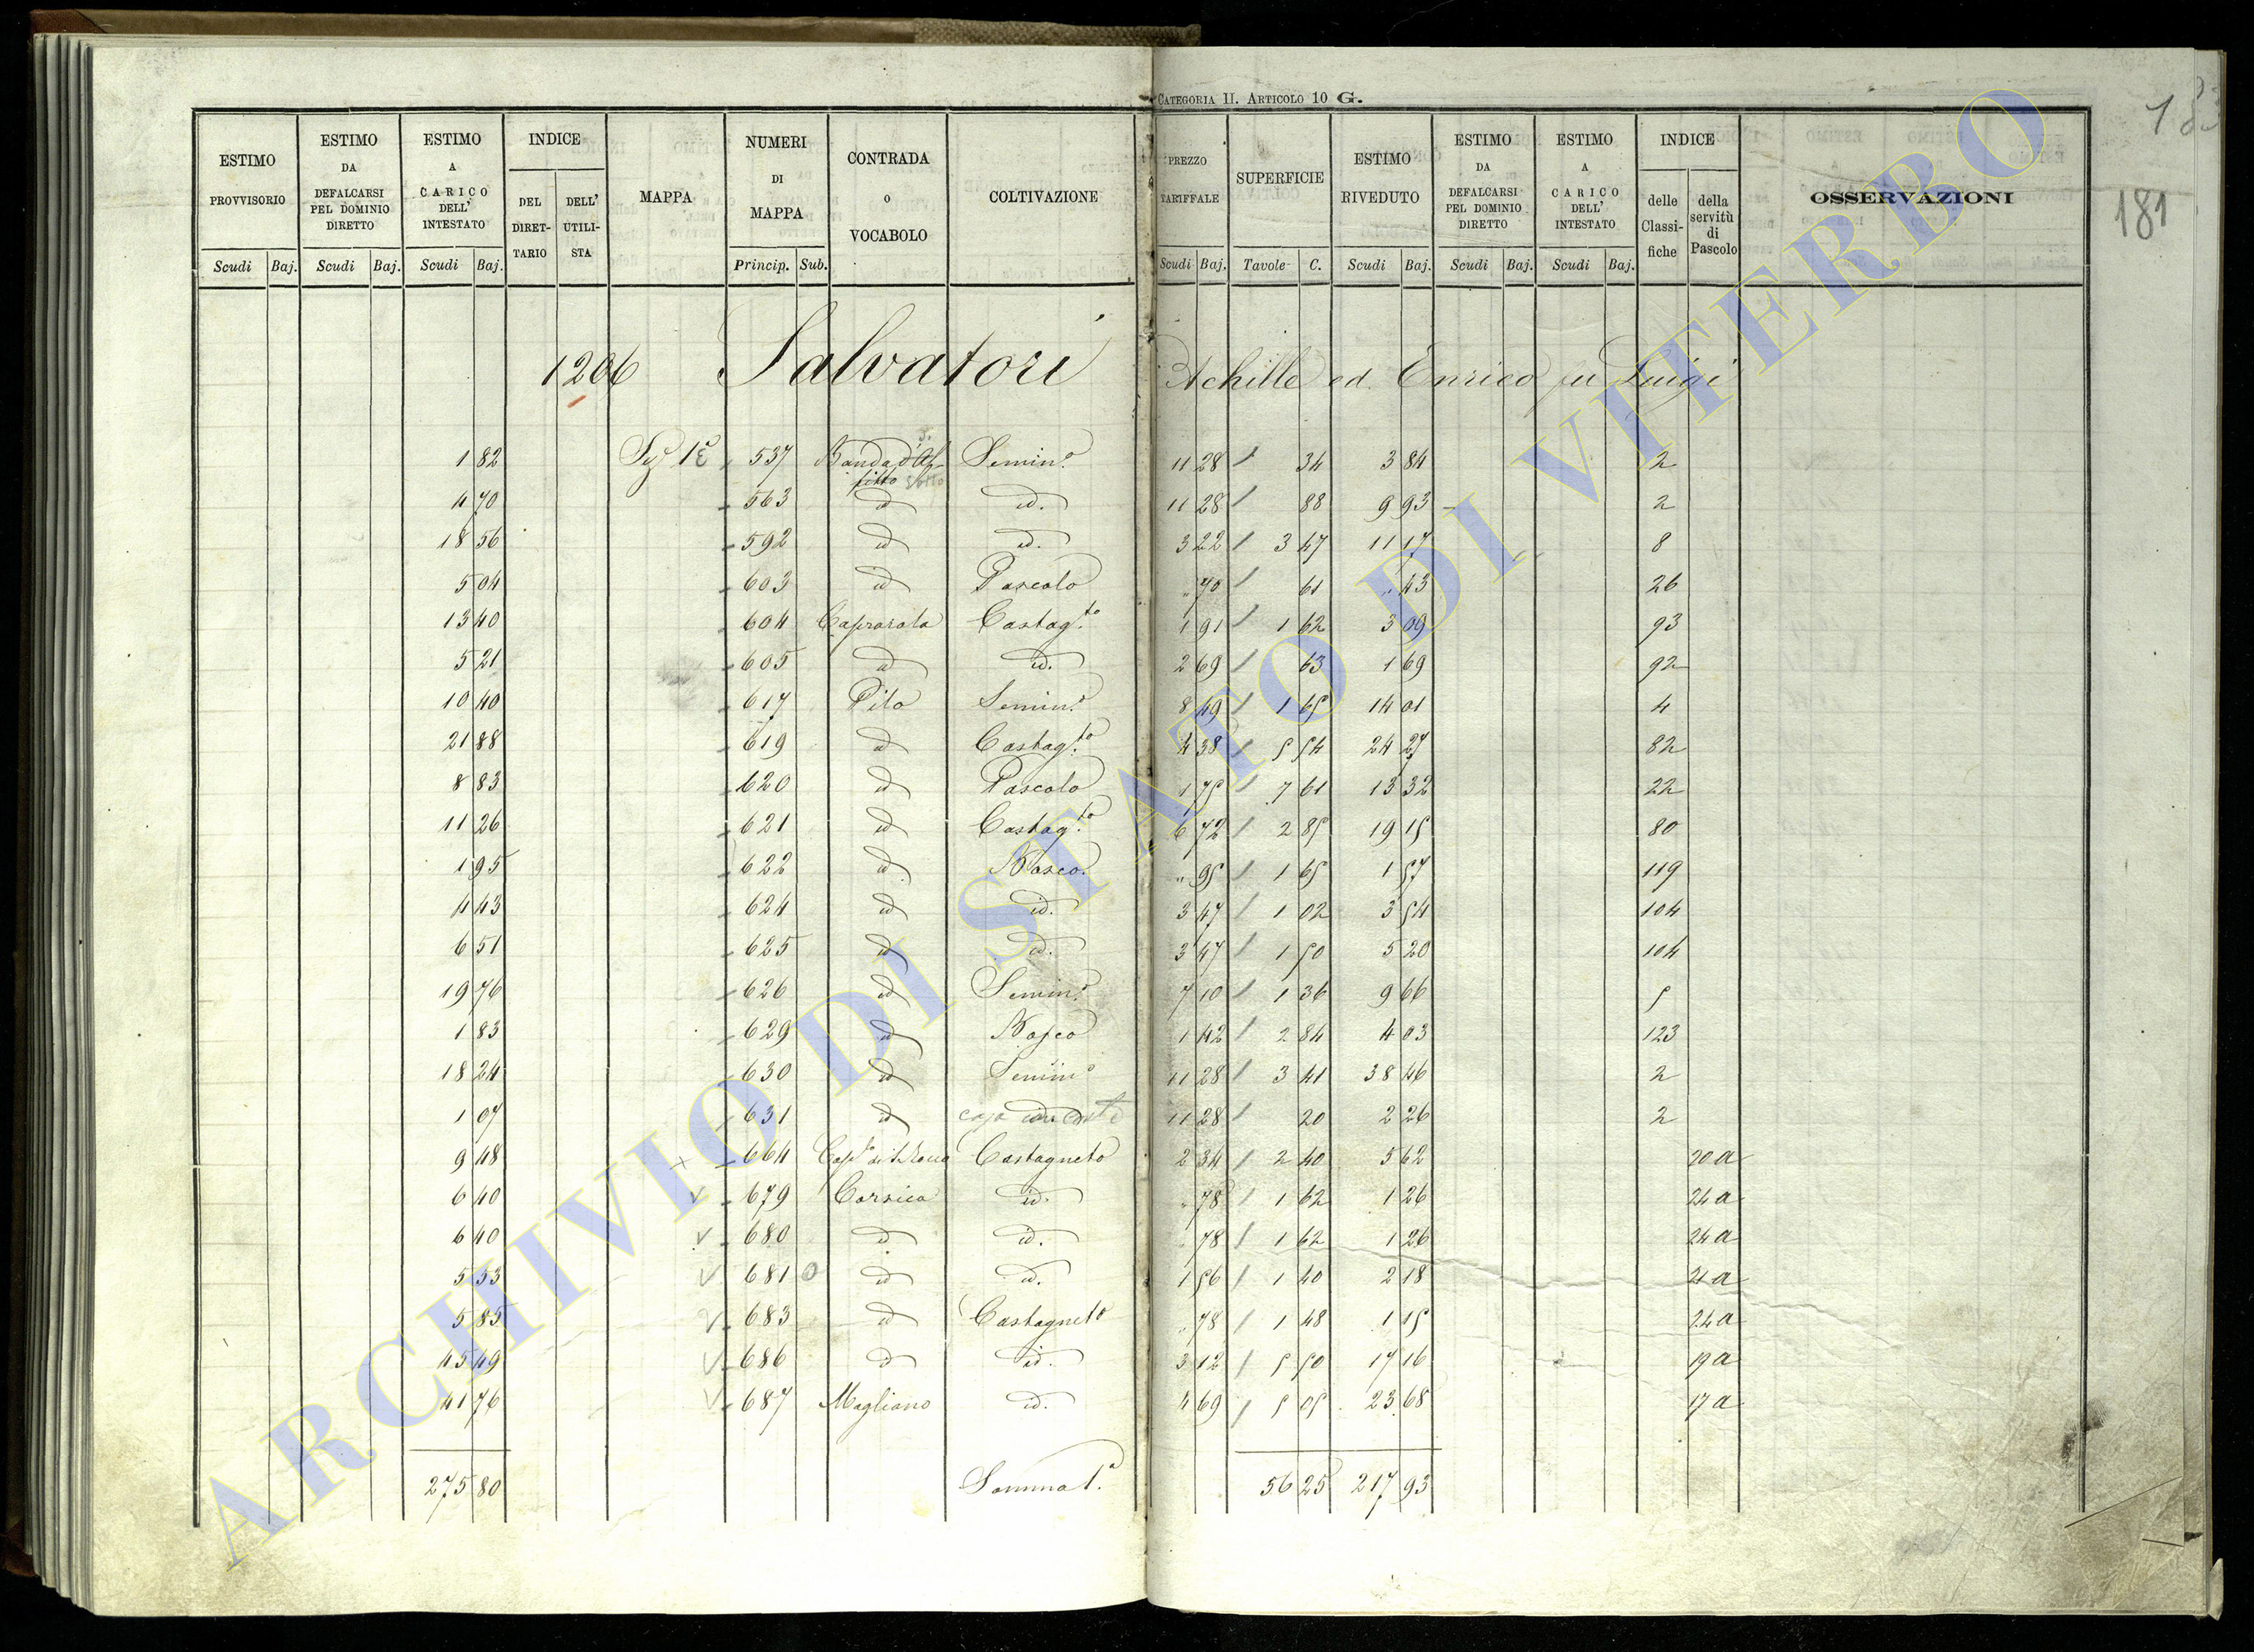 CATEGORIA II. ARTICOLO 10 G.
181
ESTIMO PROVVISORIO Scudi Baj.
ESTIMO DA DEFALCARSI PEL DOMINIO DIRETTO Scudi Baj.
ESTIMO A CARICO DELL' INTESTATO Scudi Baj.
INDICE DEL DIRETTARIO DELL' UTILISTA
MAPPA
NUMERI DI MAPPA Princip. Sub.
CONTRADA O VOCABOLO
COLTIVAZIONE
PREZZO TARIFFALE Scudi Baj.
SUPERFICIE Tavole C.
ESTIMO RIVEDUTO Scudi Baj.
ESTIMO DA DEFALCARSI PEL DOMINIO DIRETTO Scudi Baj.
ESTIMO A CARICO DELL' INTESTATO Scudi Baj.
INDICE delle Classifiche della servitù di Pascolo
OSSERVAZIONI
1206 Salvatori Achille ed Enrico fu Luigi
1 82 Sez 1ª 537 Banda d' Semin.º 11 28 34 3 84 2
4 70 563 id id. 11 28 88 9 93 2
18 56 592 id id. 3 22 3 47 11 17 8
5 04 603 id Pascolo " 70 61 " 43 26
13 40 604 Caprarola Castag.to 1 91 1 62 3 09 93
5 21 605 id id. 2 69 63 1 69 92
10 40 617 Pila Semin.º 8 49 1 65 14 01 4
21 88 619 id Castag.to 4 38 5 54 24 27 82
8 83 620 id Pascolo 1 75 7 61 13 32 22
11 26 621 id Castag.to 6 72 2 85 19 15 80
1 95 622 id Bosco " 95 1 65 1 57 119
4 43 624 id id. 3 47 1 02 3 54 104
6 51 625 id id. 3 47 1 50 5 20 104
19 76 626 id Semin.º 7 10 1 36 9 66 5
1 83 629 id Bosco 1 42 2 84 4 03 123
18 24 630 id Semin.º 11 28 3 41 38 46 2
1 07 631 id casa 11 28 20 2 26 2
9 48 664 Castagneto 2 34 2 40 5 62 20 a
6 40 679 Corsica id. " 78 1 62 1 26 24 a
6 40 680 id id. " 78 1 62 1 26 24 a
5 53 681 id id. 1 56 1 40 2 18 21 a
5 85 683 id Castagneto " 78 1 48 1 15 24 a
45 49 686 id id. 3 12 5 50 17 16 19 a
41 76 687 Magliano id. 4 69 5 05 23 68 17 a
275 80 Somma 1.ª 56 25 217 93
ARCHIVIO DI STATO DI VITERBO